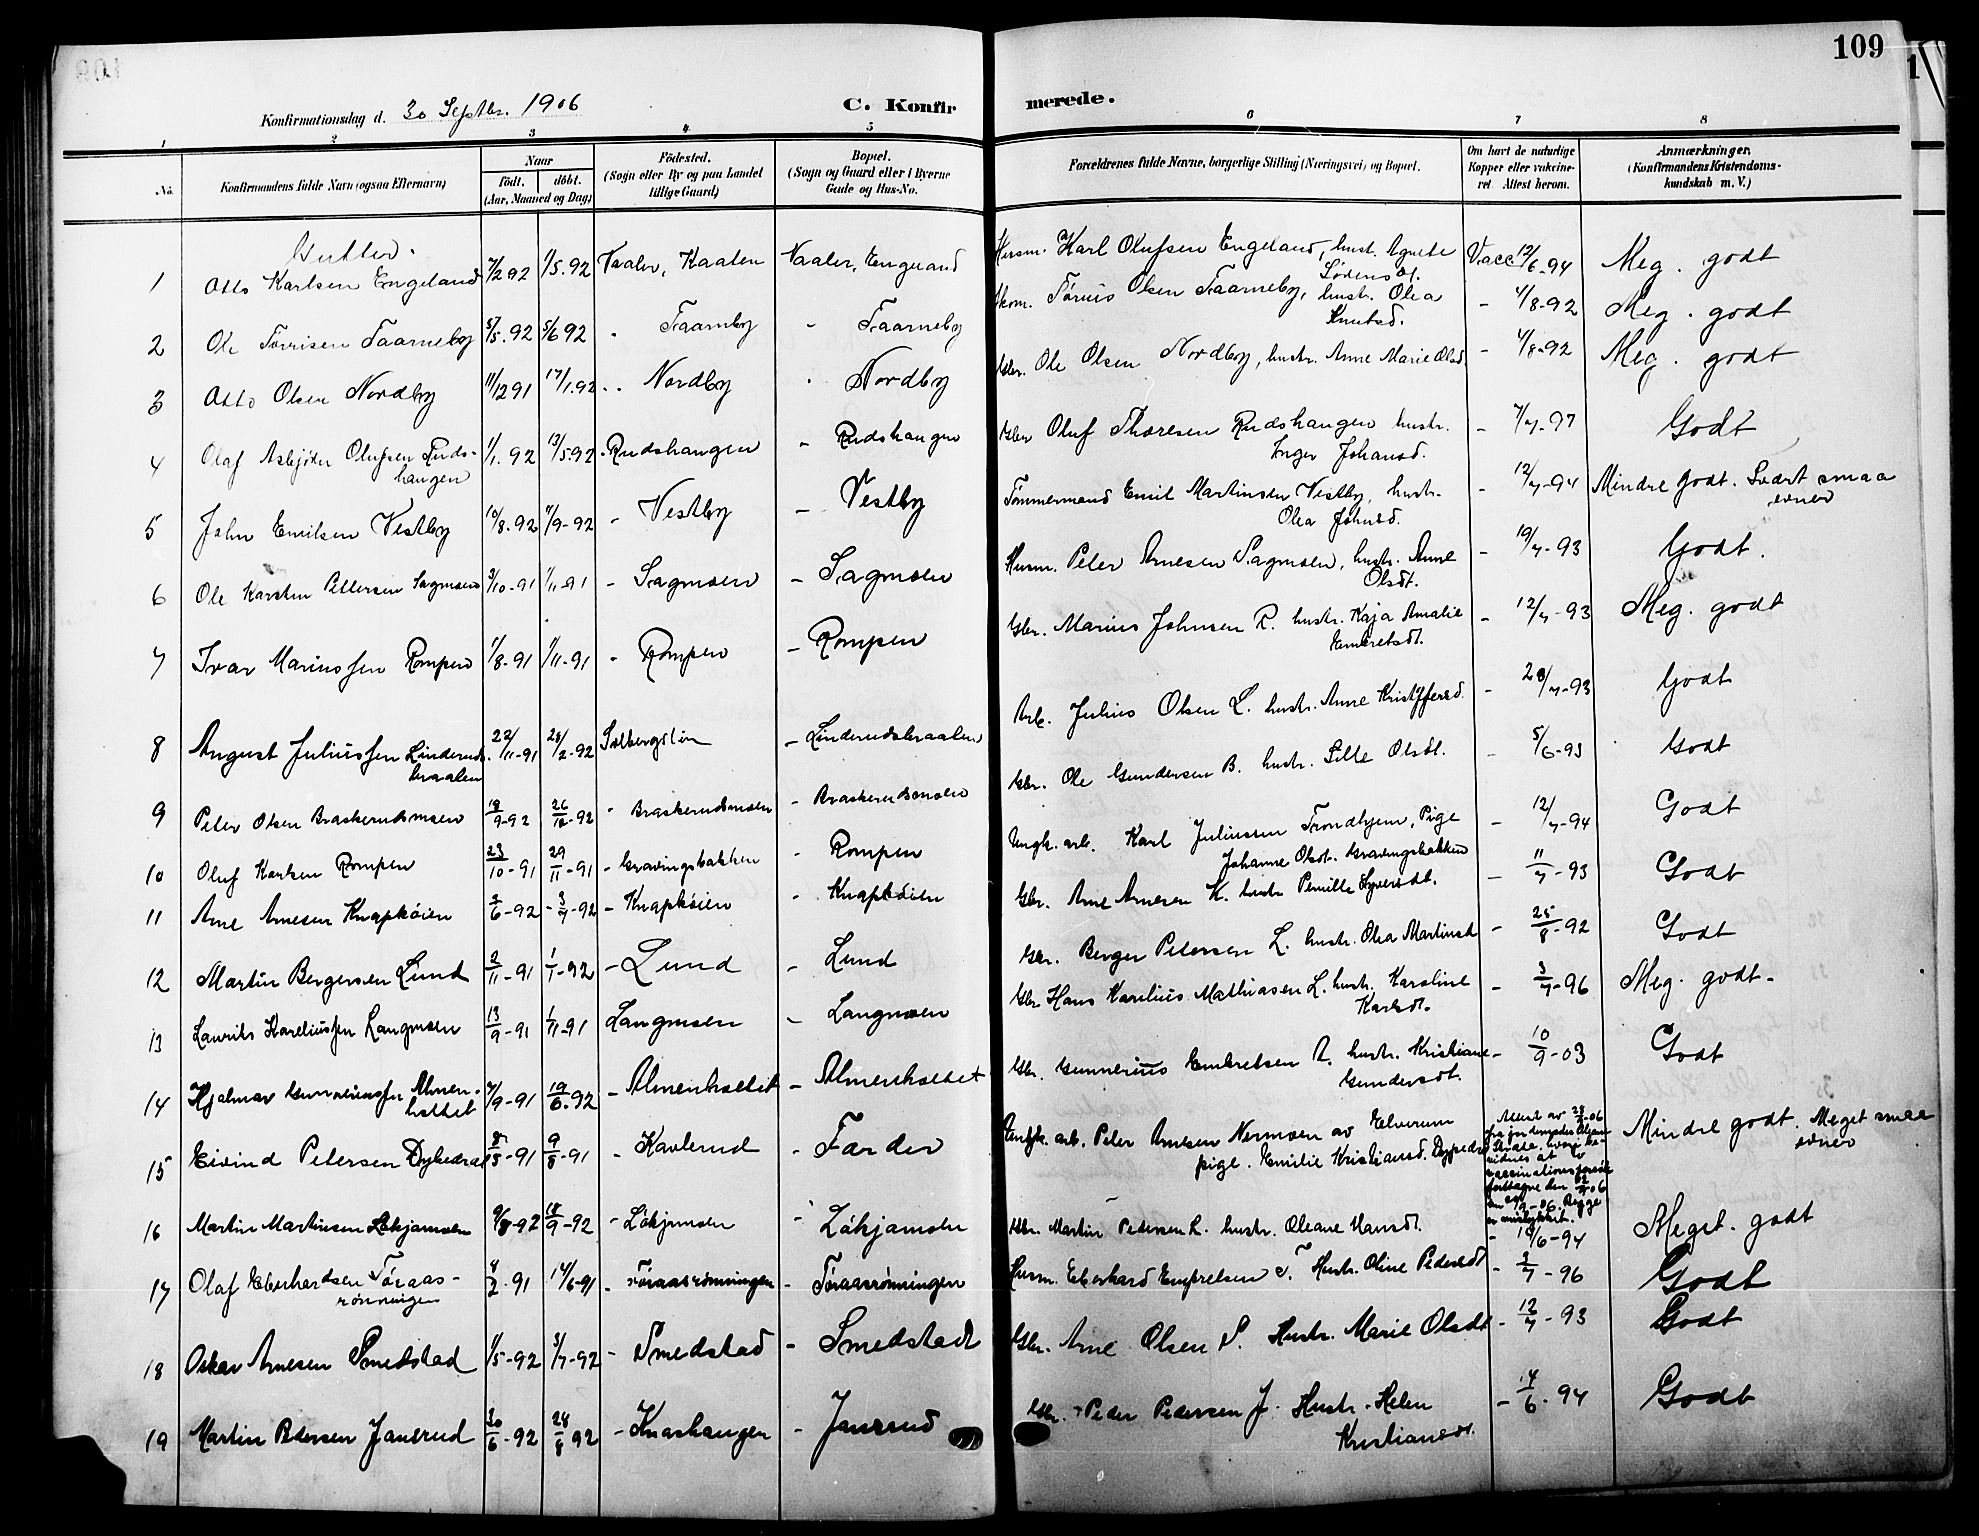 109
Konfirmationsdag d. 30 Septbr. 1906
C. Konfirmerede.
1 2 3 4 5 6 7 8
No. Konfirmandens fulde Navn (ogsaa Efternavn) Naar födt. döbt. (Aar, Maaned og Dag) Födested. (Sogn eller By og paa Landet tillige Gaard) Bopæl. (Sogn og Gaard eller i Byerne Gade og Hus-No. Forældrenes fulde Navne, borgerlige Stilling (Næringsvei) og Bopæl. Om havt de naturlige Kopper eller vakcineret Attest herom. Anmærkninger. (Konfirmandens Kristendomskundskab m. V.)
Gutter.
1 Otto Karlsen Engeland 7/2 92 1/5.92 Vaaler, Kaaten Vaaler, Engeland Husm. Karl Olufsen Engeland, hust. Agnete Vacc 12/6-94 Meg. godt
2 Ole Torrisen Taarneby 5/5.92 5/6 92 " Taarnby " Taarneby Olsen Taarneby, hustr. Olea Knutsd. - 4/8-92 Meg. godt
3 Otto Olsen Nordby 11/12 91 17/1.92 " Nordby " Nordby Gbr. Ole Olsen Nordby, hustr. Anne Marie Olsd - 4/8-92 Meg. godt
4 Olaf Asbjörn Olufsen Rudshaugen 1/1.92 13/5.92 - Rudshaugen - Rudshaugen Gbr Oluf Thoresen Rudshaugen hustr. Inger Johansd. - 7/7-97 Godt
5 John Emilsen Vestby 10/8.92 11/9-92 - Vestby - Vestby Tömmermand Emil Martinsen Vestby, hustr. Olea Johnsd. - 12/7-94 Mindre godt. Svært smaa evner
6 Ole Karsten Pettersen Sagmoen 3/10-91 1/11-91 - Sagmoen - Sagmoen Husm. Peter Arnesen Sagmoen, hustr. Anne Olsdt. - 19/7-93 Godt.
7 Ivar Mariussen Rompen 1/8-91 1/11-91 - Rompen - Rompen Gbr. Marius Johnsen R. hustr. Kaja Amalie Embretsdt. - 12/7-93 Meg. godt
8 August Juliussen Linderudsbraaten 22/11-91 28/2-92 - Linderudsbraaten Arb. Julius Olsen L. hustr. Anne Kristoffersd. - 28/7-93 Godt
9 Peter Olsen Braskerudsmoen 18/9-92 26/12-92 - Braskerudsmoen - Braskerudsmoen Gbr. Ole Gundersen B. hustr. Olsdt. - 5/6-93 Godt
10 Oluf Karlsen Rompen 23/10-91 29/11-91 - Gravingsbakken - Rompen Ungk. arb. Karl Juliussen Trondhjem, Pige Johanne Olsdt. Gravingsbakken - 12/7-94 Godt
11 Arne Arnesen Knapkøien 2/6-92 - 3/7-92 - Knapkøien - Knapkøien Gbr. Arne Arnesen K. hustr Pernille Syversdt. - 11/7-93 Godt
12 Martin Bergersen Lund 2/11-91 1/1-92 - Lund - Lund Gbr. Berger Petersen L. hustr. Olea Martinsd - 25/8-92 Godt
13 Laurits Kareliussen Langmoen 13/9-91 1/11-91 Langmoen - Langmoen Gbr Hans Karelius Mathiasen L. hustr. Karoline Karlsdt. - 3/7-96 Meg. godt.
14 Hjalmar Gunneriussen Almenholtet 7/9-91 19/6-92 - Almenholtet - Almenholtet Gbr. Gunnerius Embretsen A. hustr. Kristiane Gundersdt. - 10/9-03 Godt
15 Eivind Petersen 9/8-91 - Kavlerud - Farder Ungk. arb. Peter Arnesen Nermoen av Elverum pige. Emilie Kristiansd. Attest av fra at vaccinationsforsök foretagne den og den 1/9-06. Begge er mislykket. Mindre godt. Meget smaa evner
16 Martin Martinsen Løkjamoen 9/8-92 18/9-92 - Løkjamoen - Løkjamoen Gbr. Martin Pedersen L. hustr. Oleane Hansdt. - 18/6-94 Meget. godt
17 Olaf Eberhardsen Toraasrönningen 4/2-91 14/6-91 - Toraasrönningen - Toraasrönningen Husm. Eberhard Embretsen T. Hustr. Oline Pedersdt - 2/7-96 Godt
18 Oskar Arnesen Smedstad 1/5-92 3/7-92 - Smedstad - Smedstad Gbr. Arne Olsen S. Hustr. Marie Olsdt - 12/7-93 Godt
19 Martin Pedersen Janerud 30/6-92 28/8 92 - Knashaugen - Janerud Gbr. Peder Pedersen J. Hustr. Helen Kristiansdt. - 14/6-94 Godt